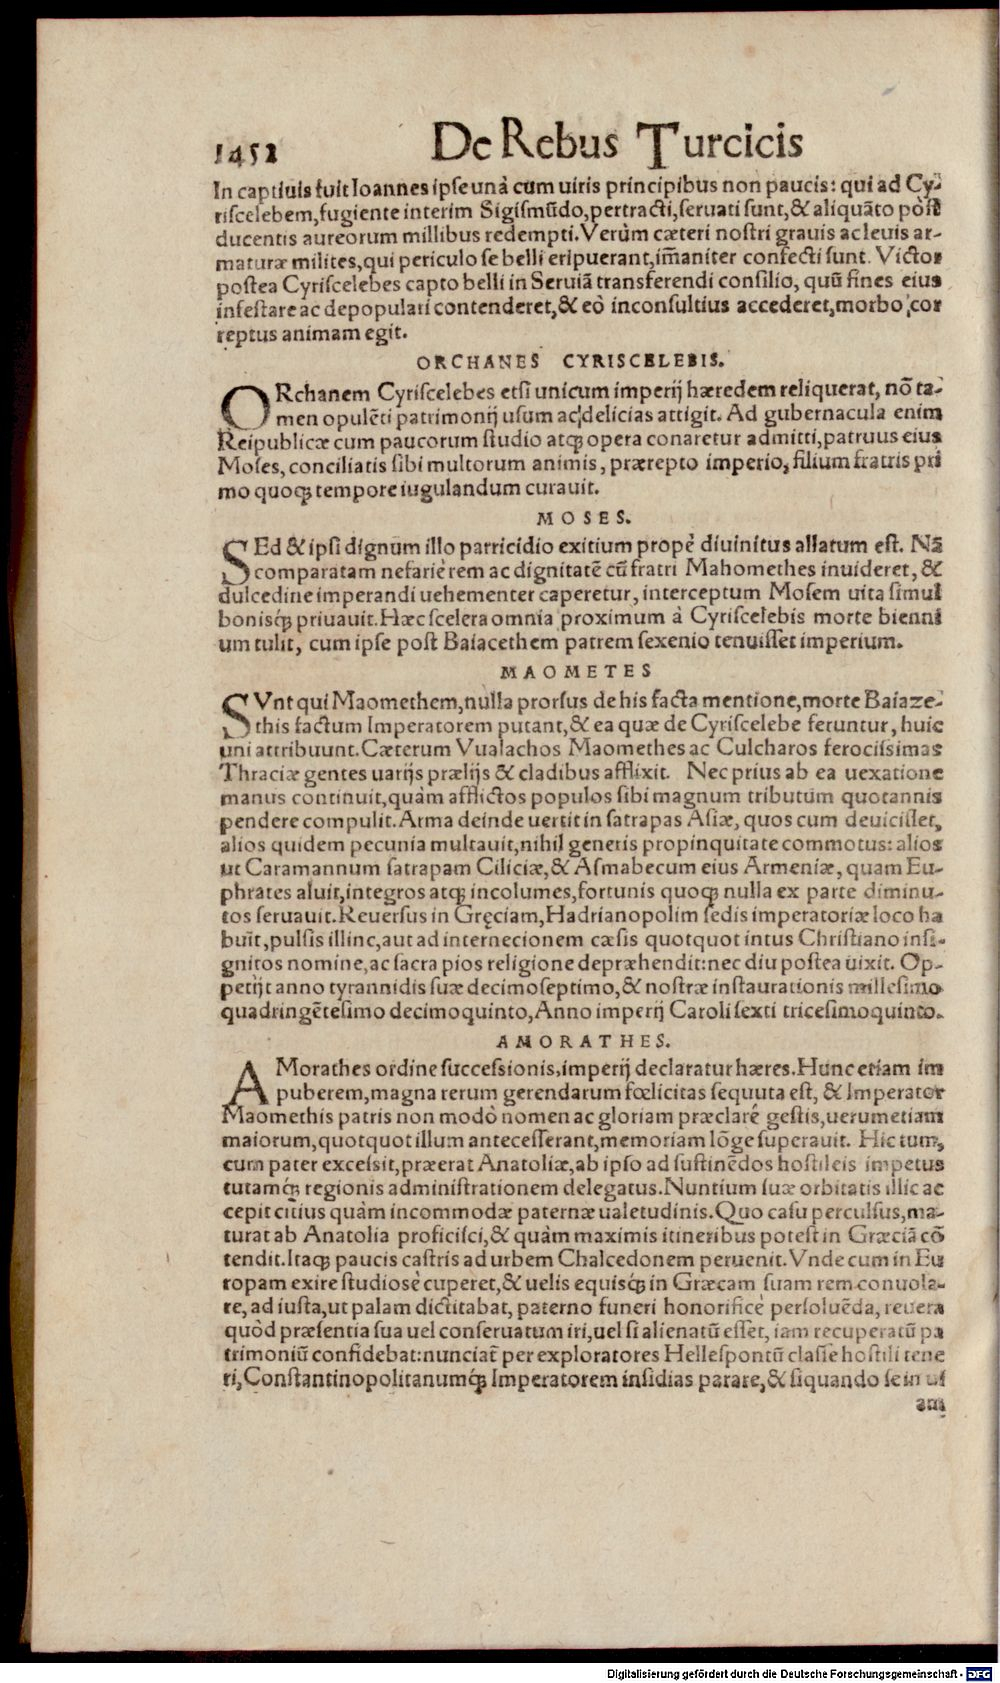 1452 De Rebus Turcicis
In captiuis fuit Ioannes ipse unà cum uiris principibus non paucis: qui ad Cy-
riscelebem, fugiente interim Sigismūdo, pertracti, seruati sunt, & aliquāto pòst
ducentis aureorum millibus redempti. Verùm cæteri nostri grauis ac leuis ar-
maturæ milites, qui periculo se belli eripuerant, im̄aniter confecti sunt. Victor
postea Cyriscelebes capto belli in Seruiā transferendi consilio, quū fines eius
infestare ac depopulari contenderet, & eò inconsultius accederet, morbo cor
reptus animam egit.
ORCHANES CYRISCELEBIS.
ORchanem Cyriscelebes etsi unicum imperij hæredem reliquerat, nō ta-
men opulēti patrimonij usum ac delicias attigit. Ad gubernacula enim
Reipublicæ cum paucorum studio atq; opera conaretur admitti, patruus eius
Moses, conciliatis sibi multorum animis, prærepto imperio, filium fratris pri
mo quoq; tempore iugulandum curauit.
MOSES.
SEd & ipsi dignum illo parricidio exitium propè diuinitus allatum est. Nā
comparatam nefariè rem ac dignitatē cū fratri Mahomethes inuideret, &
dulcedine imperandi uehementer caperetur, interceptum Mosem uita simul
bonisq́; priuauit. Hæc scelera omnia proximum à Cyriscelebis morte bienni
um tulit, cum ipse post Baiacethem patrem sexenio tenuisset imperium.
MAOMETES
SVnt qui Maomethem, nulla prorsus de his facta mentione, morte Baiaze-
this factum Imperatorem putant, & ea quæ de Cyriscelebe feruntur, huic
uni attribuunt. Cæterum Vualachos Maomethes ac Culcharos ferocissimas
Thraciæ gentes uarijs prælijs & cladibus afflixit. Nec prius ab ea uexatione
manus continuit, quàm afflictos populos sibi magnum tributum quotannis
pendere compulit. Arma deinde uertit in satrapas Asiæ, quos cum deuicisset,
alios quidem pecunia multauit, nihil generis propinquitate commotus: alios
ut Caramannum satrapam Ciliciæ, & Asmabecum eius Armeniæ, quam Eu-
phrates aluit, integros atq; incolumes, fortunis quoq; nulla ex parte diminu-
tos seruauit. Reuersus in Gręciam, Hadrianopolim sedis imperatoriæ loco ha
buit, pulsis illinc, aut ad internecionem cæsis quotquot intus Christiano insi-
gnitos nomine, ac sacra pios religione depræhendit: nec diu postea uixit. Op-
petijt anno tyrannidis suæ decimoseptimo, & nostræ instaurationis millesimo
quadringētesimo decimoquinto, Anno imperij Caroli sexti tricesimoquinto.
AMORATHES.
AMorathes ordine successionis, imperij declaratur hæres. Hunc etiam im
puberem, magna rerum gerendarum fœlicitas sequuta est, & Imperator
Maomethis patris non modò nomen ac gloriam præclarè gestis, uerumetiam
maiorum, quotquot illum antecesserant, memoriam lōge superauit. Hic tum,
cum pater excessit, præerat Anatoliæ, ab ipso ad sustinēdos hostileis impetus
tutamq́; regionis administrationem delegatus. Nuntium suæ orbitatis illic ac
cepit citius quàm incommodæ paternæ ualetudinis. Quo casu perculsus, ma-
turat ab Anatolia proficisci, & quàm maximis itineribus potest in Græciā cō
tendit. Itaq; paucis castris ad urbem Chalcedonem peruenit. Vnde cum in Eu
ropam exire studiosè cuperet, & uelis equisq́; in Græcam suam rem conuola-
re, ad iusta, ut palam dictitabat, paterno funeri honorificè persoluēda, reuera
quòd præsentia sua uel conseruatum iri, uel si alienatū esset, iam recuperatū pa
trimoniū confidebat: nunciat̄ per exploratores Hellespontū classe hostili tene
ri, Constantinopolitanumq́; Imperatorem insidias parare, & siquando se in ul
am
Digitalisierung gefördert durch die Deutsche Forschungsgemeinschaft - DFG